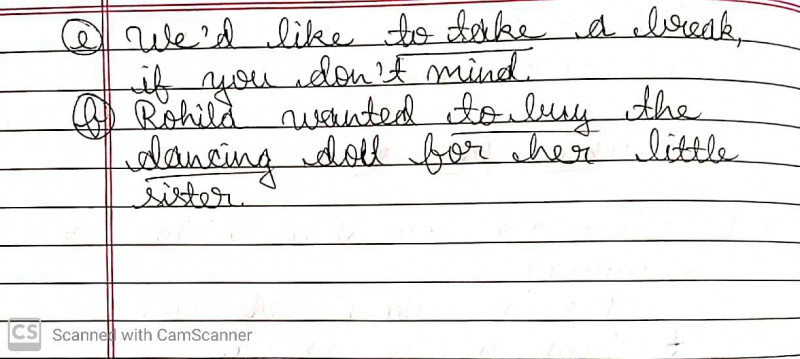 (e) We'd like to take a break,
if you don't mind.
(f) Rohila wanted to buy the
dancing doll for her little
sister.
CS Scanned with CamScanner